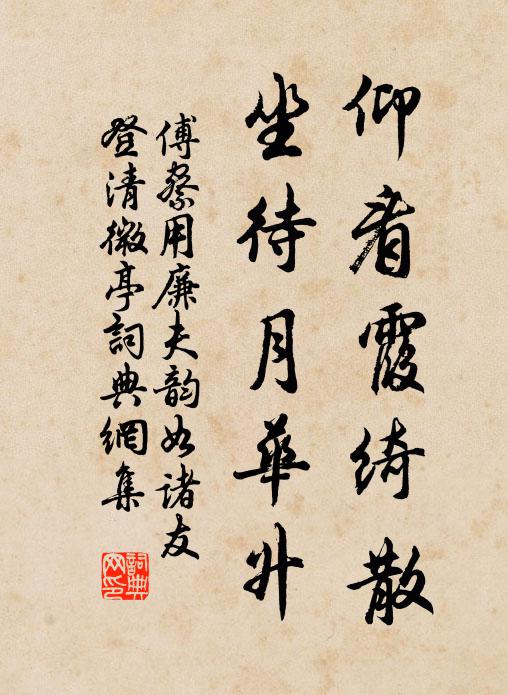 仰看霞綺散
坐待月華升
傅察用廉夫韵如诸友
登清微亭詞典網集
詞典
网印